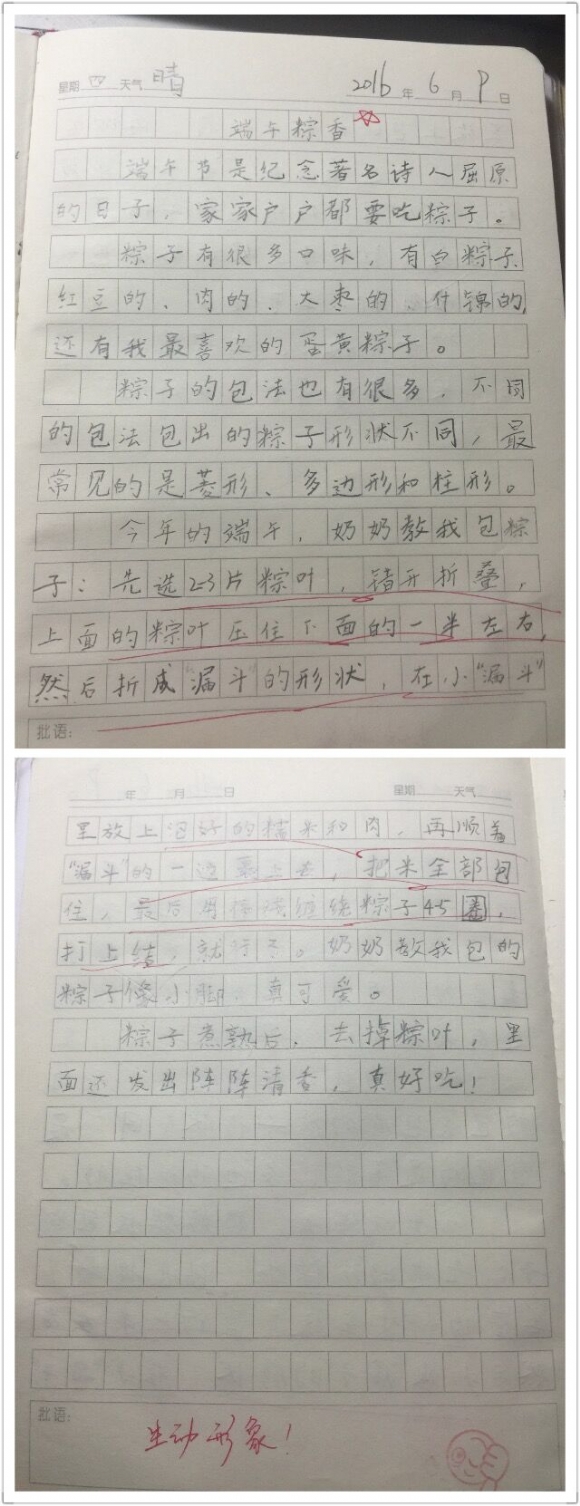 星期 四 天气 晴 2016 年 6 月 9 日
端午粽香
端午节是纪念著名诗人屈原
的日子，家家户户都要吃粽子。
粽子有很多口味，有白粽子、
红豆的、肉的、大枣的、什锦的，
还有我最喜欢的蛋黄粽子。
粽子的包法也有很多，不同
的包法包出的粽子形状不同，最
常见的是菱形、多边形和柱形。
今年的端午，奶奶教我包粽
子：先选2-3片粽叶，错开折叠，
上面的粽叶压住下面的一半左右，
然后折成“漏斗”的形状，在小“漏斗”
批语：
年 月 日 星期 天气
里放上泡好的糯米和肉，再顺着
“漏斗”的一边裹上去，把米全部包
住，最后用棉线缠绕粽子4-5圈，
打上结，就行了。奶奶教我包的
粽子像小脚，真可爱。
粽子煮熟后，去掉粽叶，里
面还发出阵阵清香，真好吃！
批语：
生动形象！